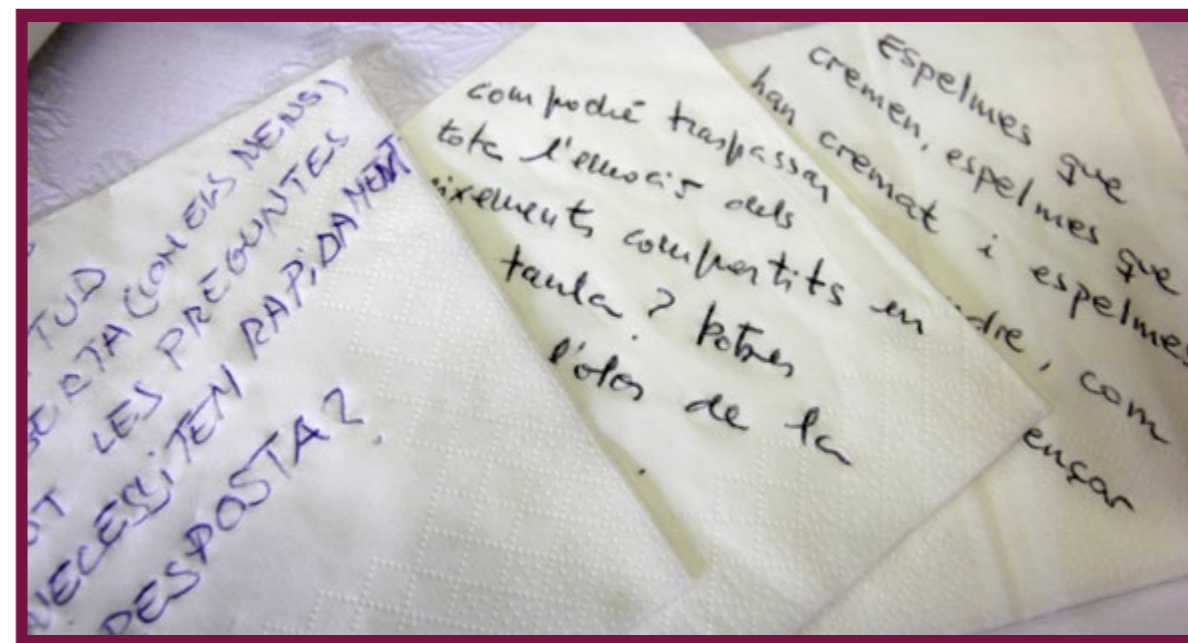 TUD
(COM ELS NENS)
LES PREGUNTES
NECESSITEN RAPIDAMENT
RESPOSTA?
com podré traspassar
tota l'emoció dels
ixements compartits en
taula? Potser
l'olor de la
Espelmes que
cremen, espelmes que
han cremat i espelmes
dre, com
ençar